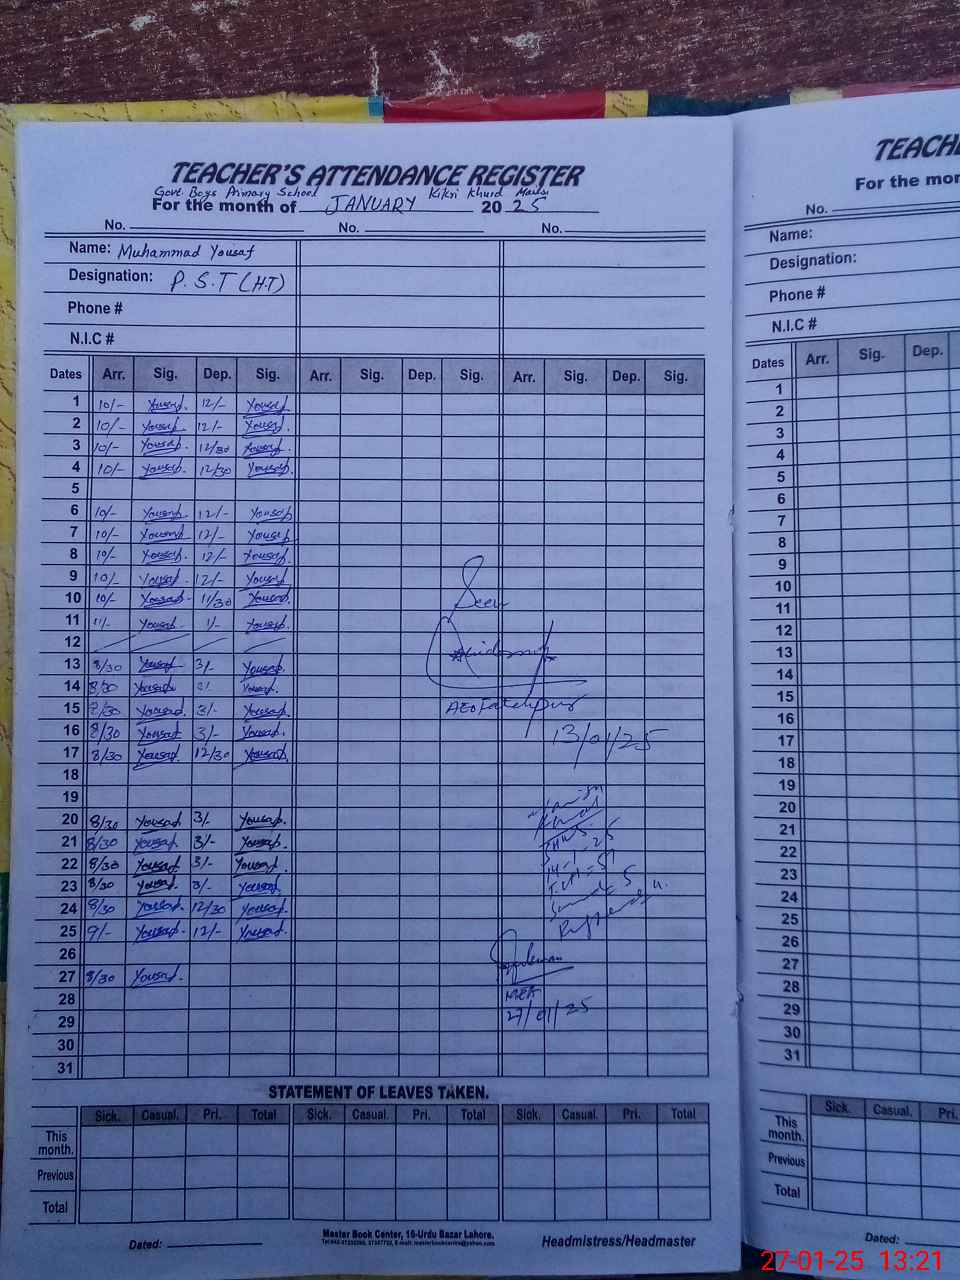 TEACHER'S ATTENDANCE REGISTER
Govt. Boys Primary School Kikri Khurd
For the month of JANUARY 2025
No. No. No.
Name: Muhammad Yousaf
Designation: P.S.T (H.T)
Phone #
N.I.C #
Dates Arr. Sig. Dep. Sig. Arr. Sig. Dep. Sig. Arr. Sig. Dep. Sig.
1 10/- Yousaf. 12/- Yousaf
2 10/- Yousaf. 12/- Yousaf.
3 10/- Yousaf. 12/30 Yousaf.
4 10/- Yousaf. 12/30 Yousaf.
5
6 10/- Yousaf 12/- Yousaf
7 10/- Yousaf 12/- Yousaf
8 10/- Yousaf. 12/- Yousaf.
9 10/- Yousaf 12/- Yousaf
10 10/- Yousaf. 11/30 Yousaf.
Seen
11 11/- Yousaf 1/- Yousaf.
12
13 8/30 Yousaf 3/- Yousaf.
14 8/30 Yousaf Yousaf.
15 8/30 Yousaf. 3/- Yousaf.
AEO Fatehpur
16 8/30 Yousaf 3/- Yousaf.
13/01/25
17 8/30 Yousaf. 12/30 Yousaf.
18
19
20 8/30 Yousaf 3/- Yousaf.
21 8/30 Yousaf 3/- Yousaf.
22 8/30 Yousaf 3/- Yousaf.
14-1-25
23 8/30 Yousaf. 3/- Yousaf
24 8/30 Yousaf. 12/30 Yousaf.
25 9/- Yousaf. 12/- Yousaf.
26
27 8/30 Yousaf.
28
MEA
29
27/01/25
30
31
STATEMENT OF LEAVES TAKEN.
Sick. Casual. Pri. Total Sick. Casual. Pri. Total Sick. Casual. Pri. Total
This month.
Previous
Total
Dated:
Master Book Center, 16-Urdu Bazar Lahore.
Headmistress/Headmaster
TEACHE
For the mor
No.
Name:
Designation:
Phone #
N.I.C #
Dates Arr. Sig. Dep.
1
2
3
4
5
6
7
8
9
10
11
12
13
14
15
16
17
18
19
20
21
22
23
24
25
26
27
28
29
30
31
Sick. Casual. Pri.
This month.
Previous
Total
Dated:
27-01-25 13:21